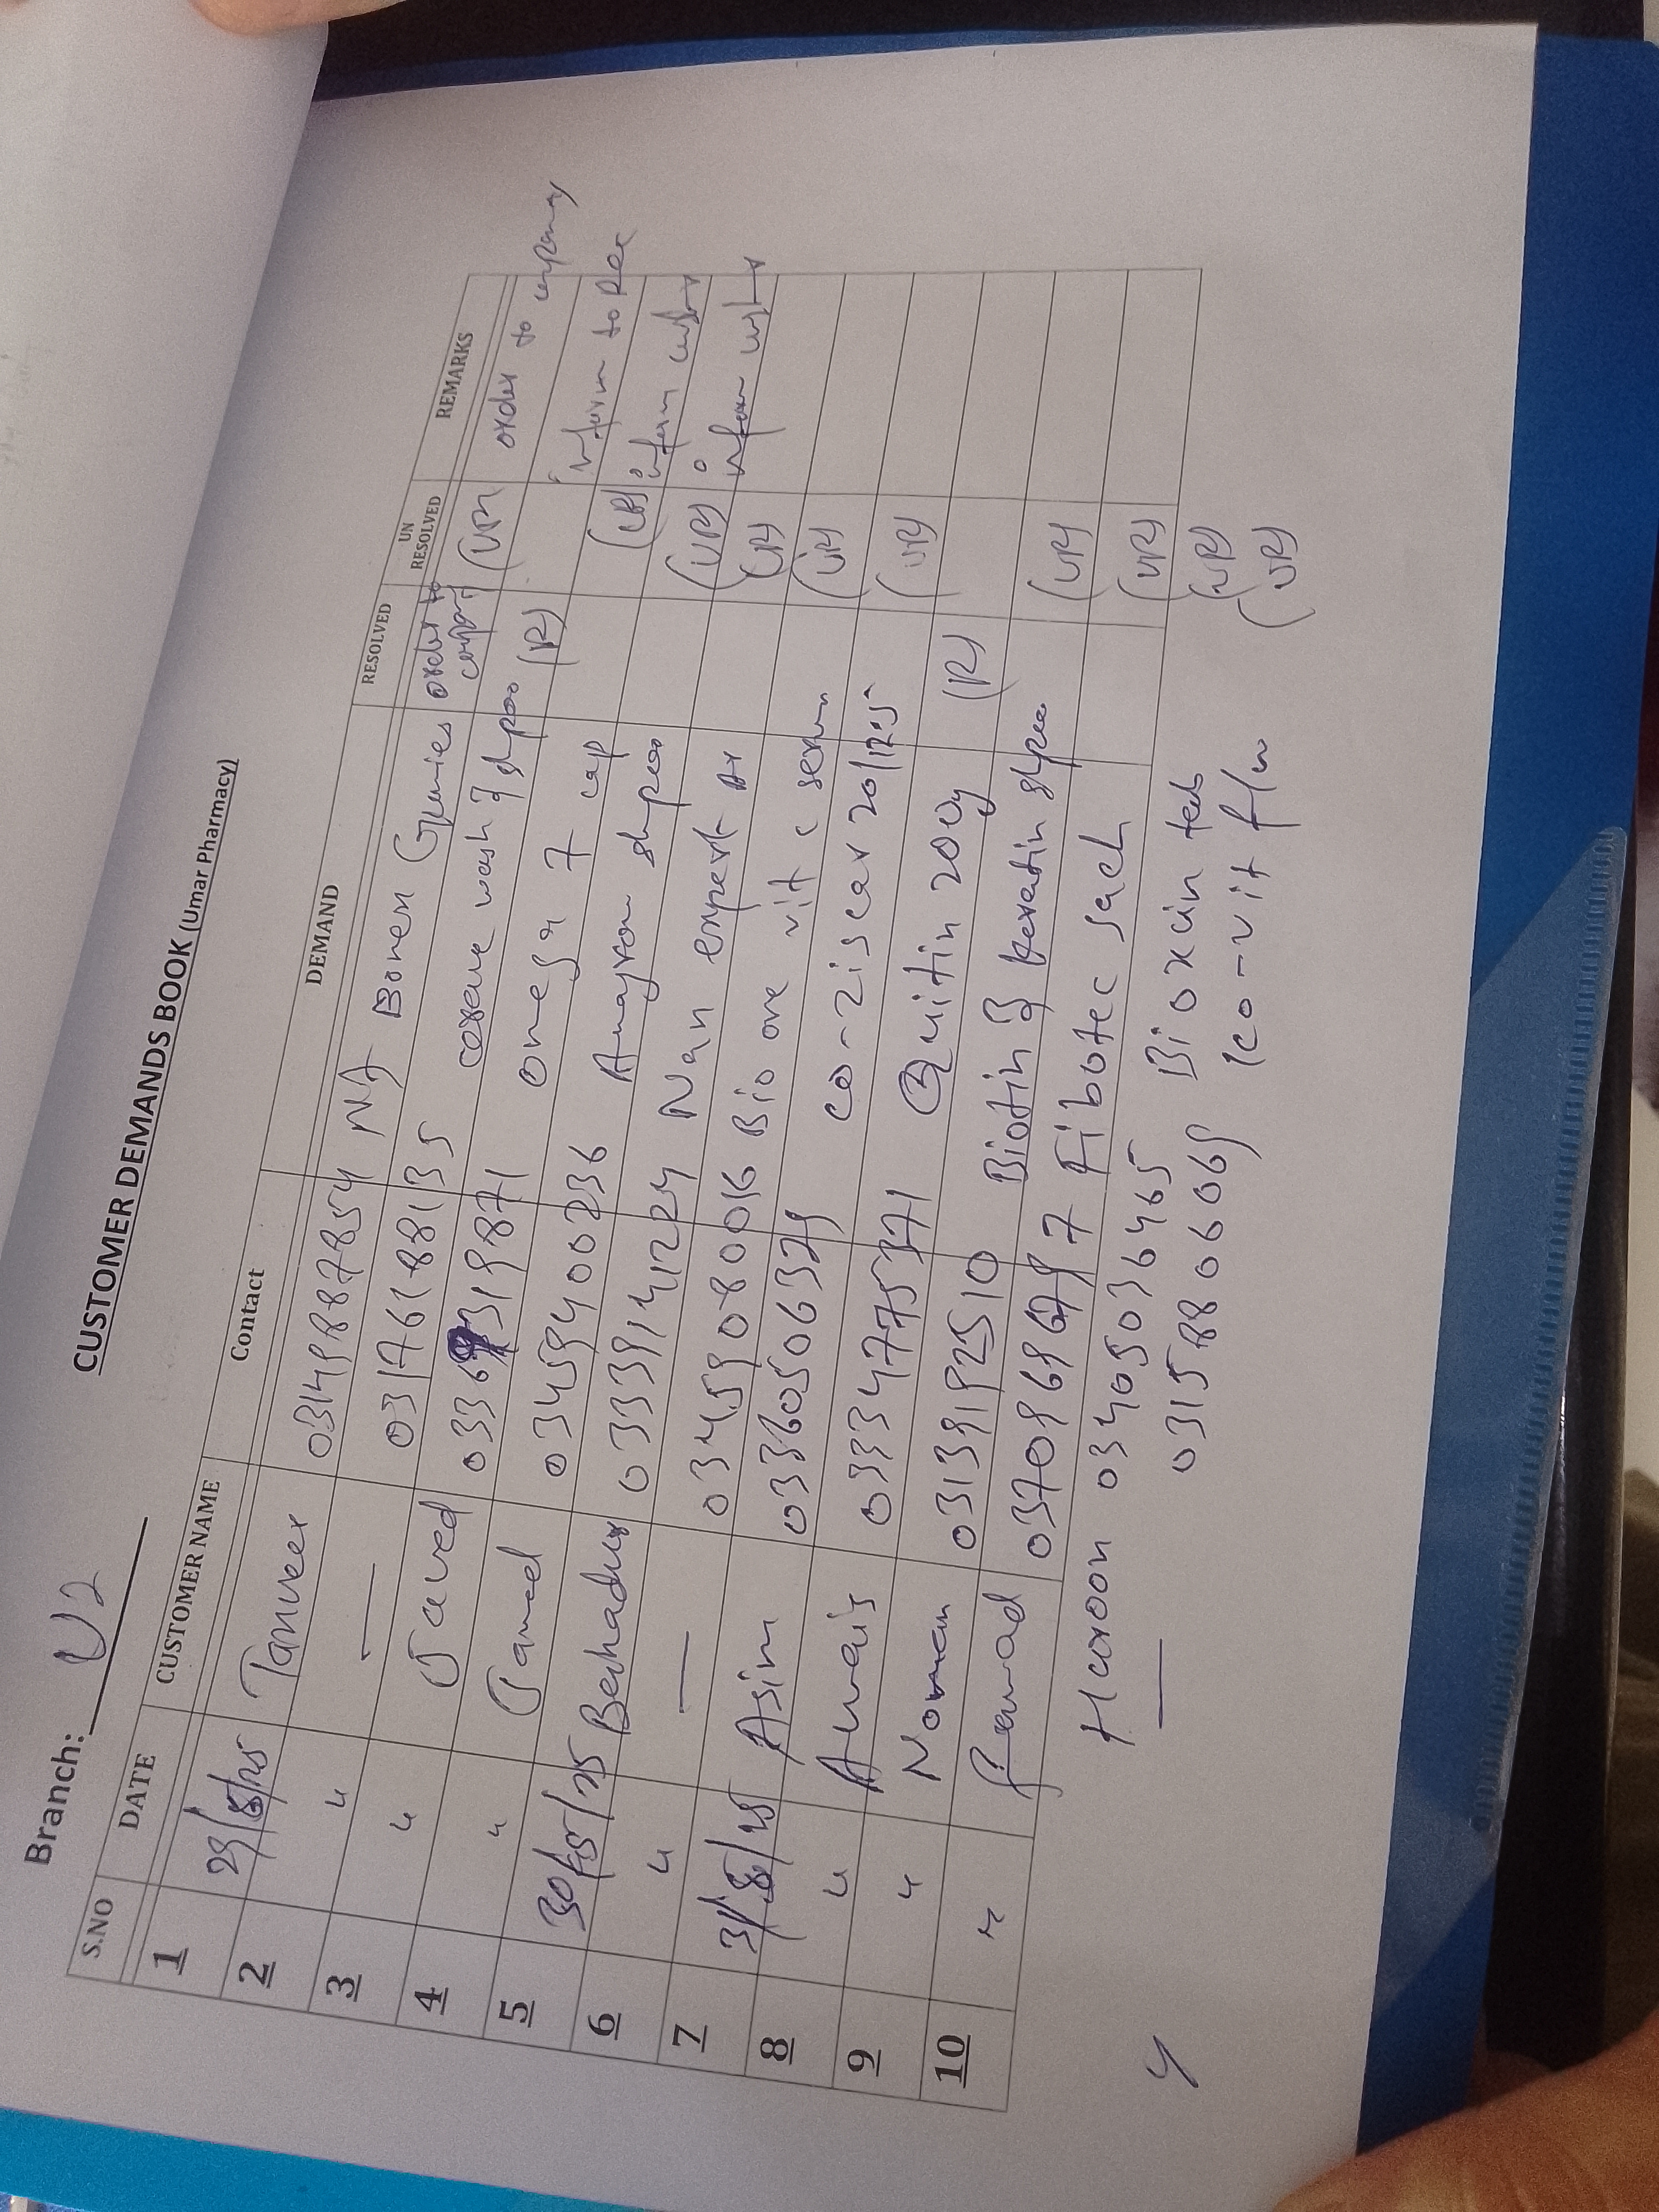 Branch: U2
CUSTOMER DEMANDS BOOK (Umar Pharmacy)
S.NO DATE CUSTOMER NAME Contact DEMAND RESOLVED UN RESOLVED REMARKS
1 29/8/25 Tanveer 03149887854 NJ Bonen Gummies order to company (UR) order to company
2 " — 03176188135 cerave wash & shpoo (R)
3 " Javed 0336 9319871 omega 7 cap (UR) inform to
4 " Jamed 03459400236 shpoo (UR) inform
5 30/8/25 Bahadur 03339141224 Nan expert (UR) inform
6 " — 03459080016 Bio ore vit c serum (UR)
7 31/8/25 Asim 03360506329 co-ziscar 20/12.5 (UR)
8 " Awais 03334775371 Qutin 200g (R)
9 " Noman 03139192510 Biotin & keratin shpoo (UR)
10 " Fawad 03709696797 Fibotec sach (UR)
Haroon 03405036465 Bioxcin tab (UR)
— 03158806069 co-vit f/w (UR)